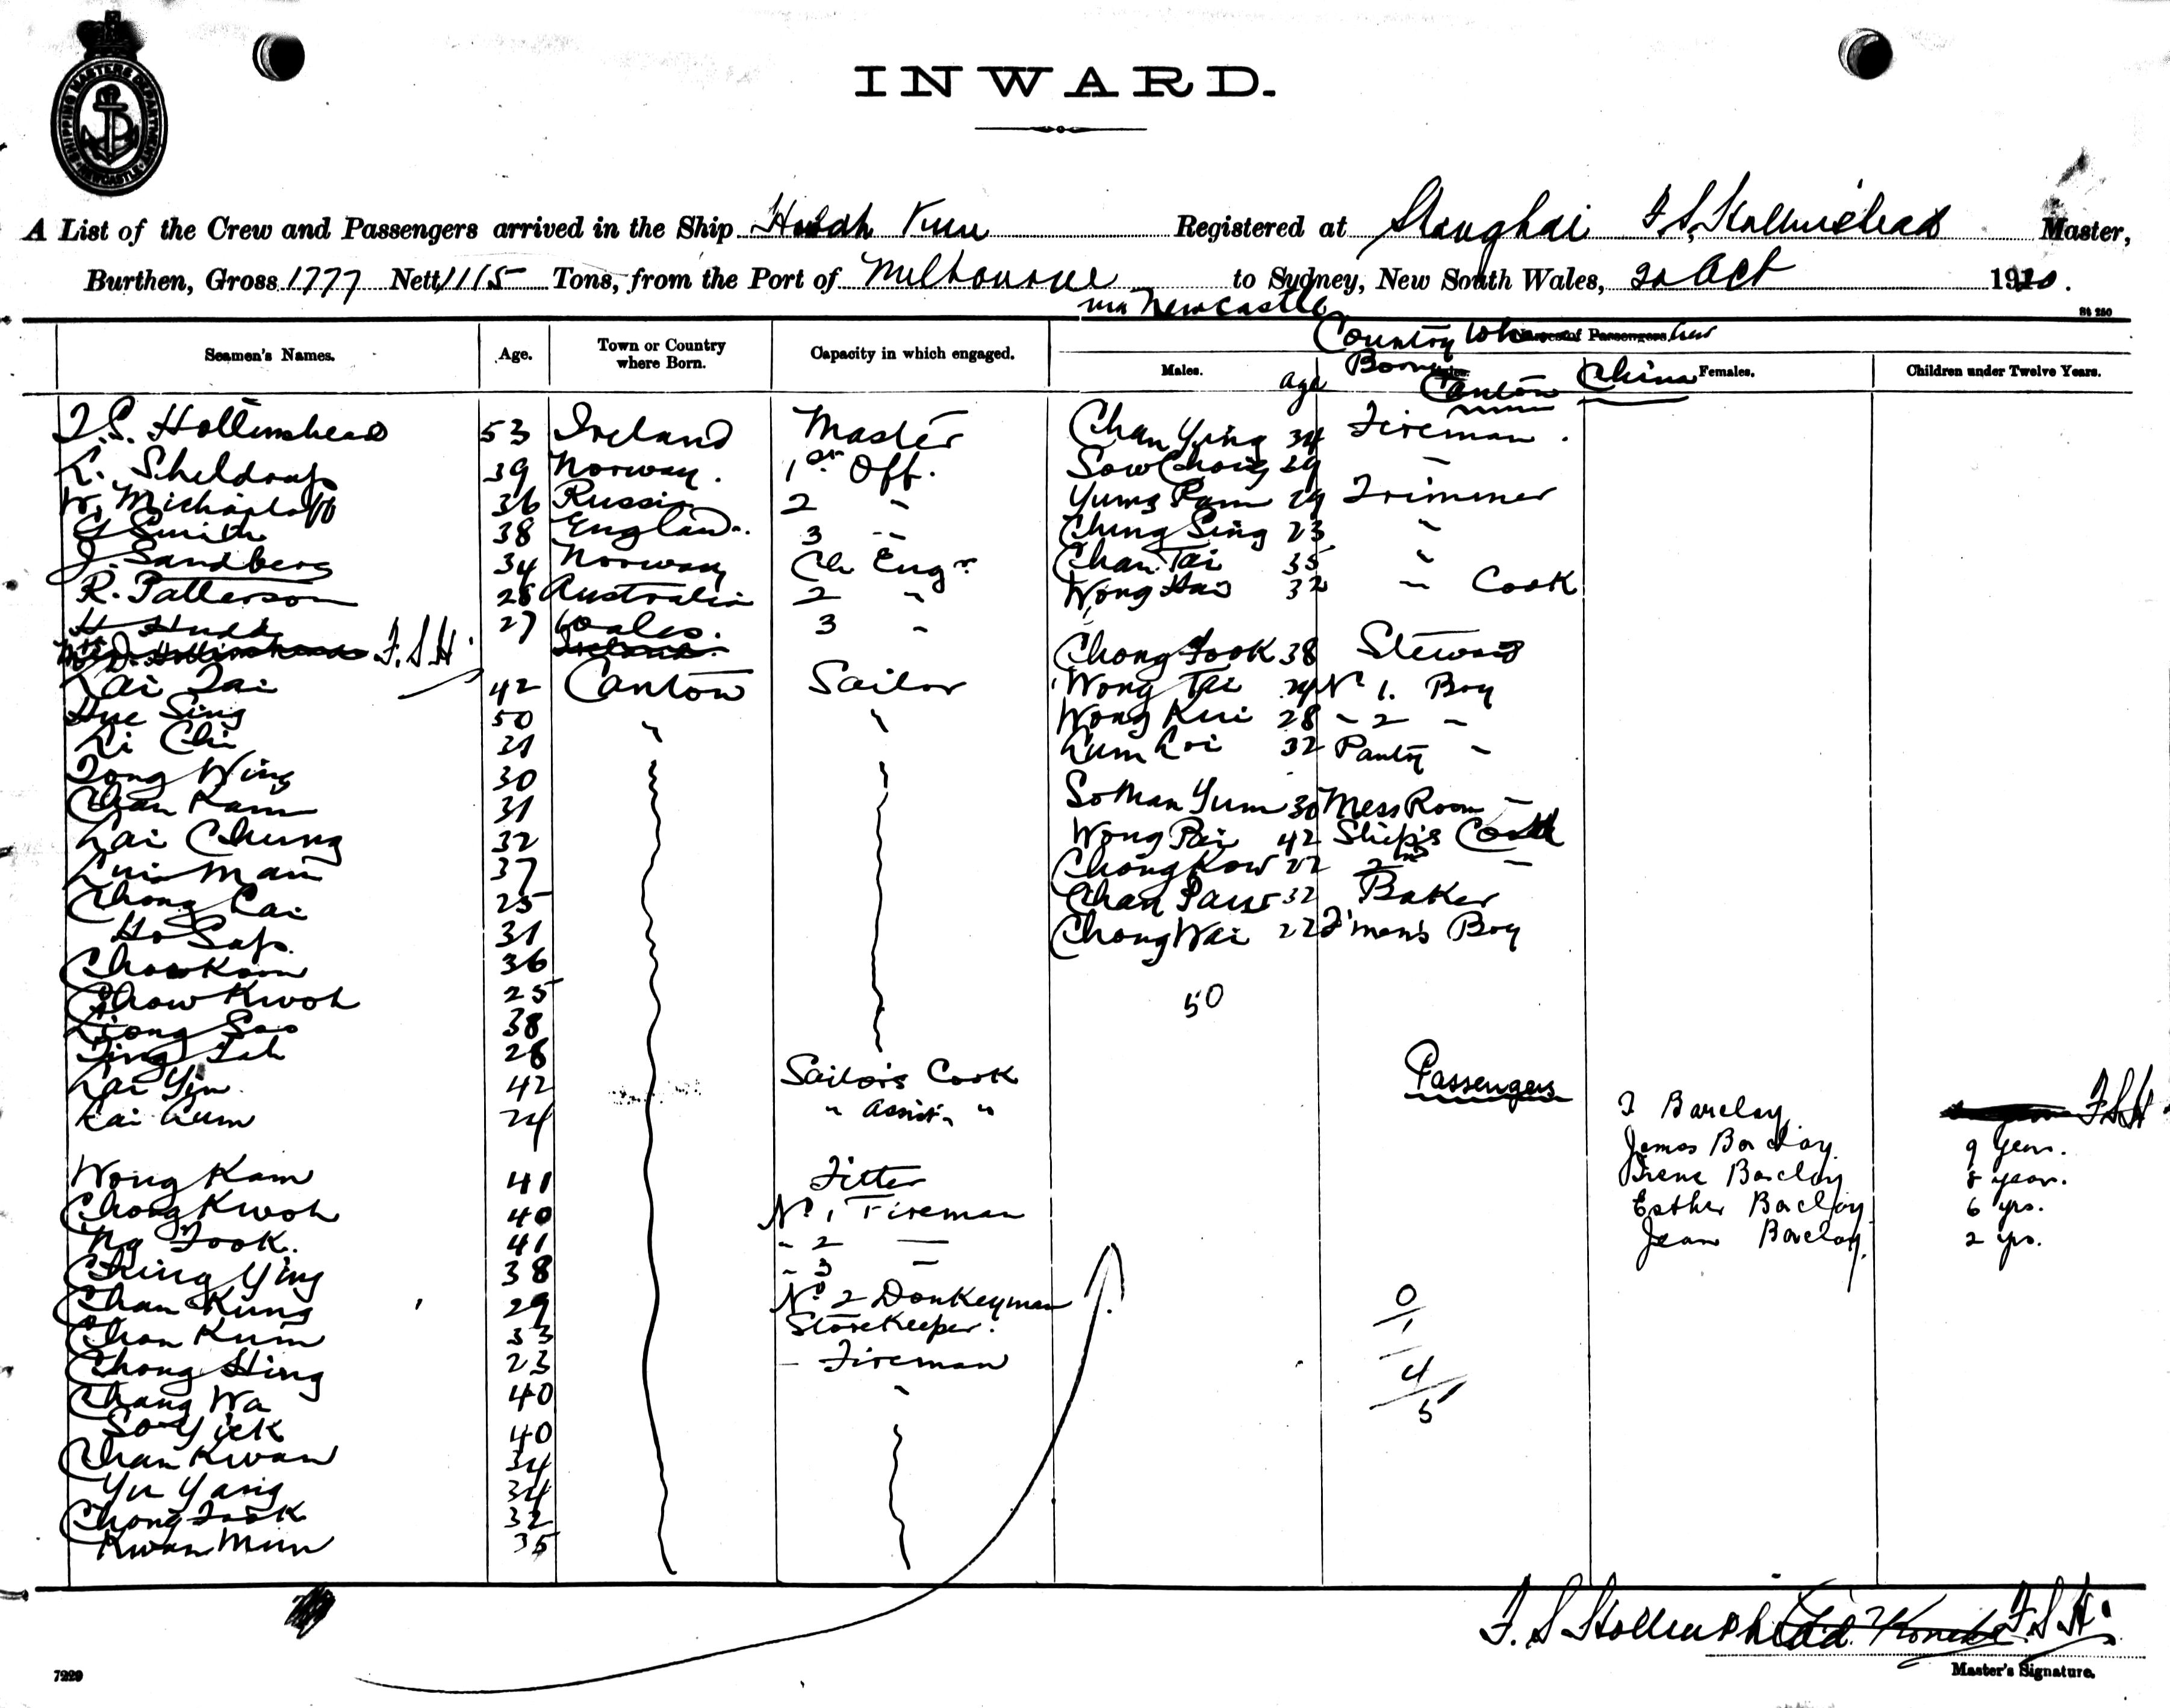 SHIPPING MASTERS DEPARTMENT NEWCASTLE
INWARD.
A List of the Crew and Passengers arrived in the Ship Registered at Shanghai F. S. Hollinshead Master,
Burthen, Gross 1777 Nett 1115 Tons, from the Port of Melbourne to Sydney, New South Wales, 20 Oct 1920.
via Newcastle
St 250
Seamen's Names. Age. Town or Country where Born. Capacity in which engaged. Names of Passengers Country where Born Crew
Males. age Canton China Females. Children under Twelve Years.
F.S. Hollinshead 53 Ireland Master Chan Ying 34 Fireman .
39 Norway. 1st Off. Sow Chong 29 "
W. Michailoff 36 Russia 2 " Yung Pam 29 Trimmer
G Smith 38 England. 3 " Ching Sing 23 "
J. Sandberg 34 Norway Ch Engr. Chan Tai 35 "
R. Patterson 28 Australia 2 " Wong Hai 32 " Cook
H Hudd 27 Wales. 3 "
Mrs D. Hollinshead F.S.H. Ireland. Chong Fook 38 Steward
Lai Tai 42 Canton Sailor Wong Tai 24 No 1. Boy
Hue Sing 50 " " Wong Kui 28 " 2 "
Li Chi 31 Lum Loi 32 Pantry "
Tong Wing 30
Chan Kam 31 So Man Yum 30 Mess Room "
Lai Chung 32 Wong Pui 42 Ship's Cook
Lui Man 37 Chong Kow 22 2nd "
Chong Cai 25 Chan Paw 32 Baker
Ho Sap. 31 Chong Wai 22 F'men's Boy
Chow Kam 36
Chow Kwoh 25 50
Liong Soo 38
28
Lai Yin 42 Sailor's Cook Passengers
Lai Cum 24 " Assist. " Barclay F.S.H
James Barclay. 9 Years.
Wong Kam 41 Fitter Irene Barclay 8 years.
Chong Kwoh 40 No 1 Fireman Esther Barclay 6 yrs.
Ng Fook. 41 " 2 — Jean Barclay. 2 yrs.
Ching Ying 38 " 3 —
Chan Kung 29 No 2 Donkeyman 0/1
Chan Kum 33 Storekeeper.
Chong Hing 23 - Fireman 4/5
Chang Wa 40 "
So Yick 40
Chan Kwan 34
Yu Yang 34
Chong Fook 32
Kwan Mun 35
F. S Hollinshead F.S.H.
Master's Signature.
7229